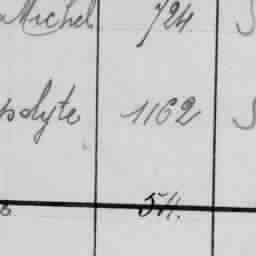 Michel 724
polyte 1162
54.